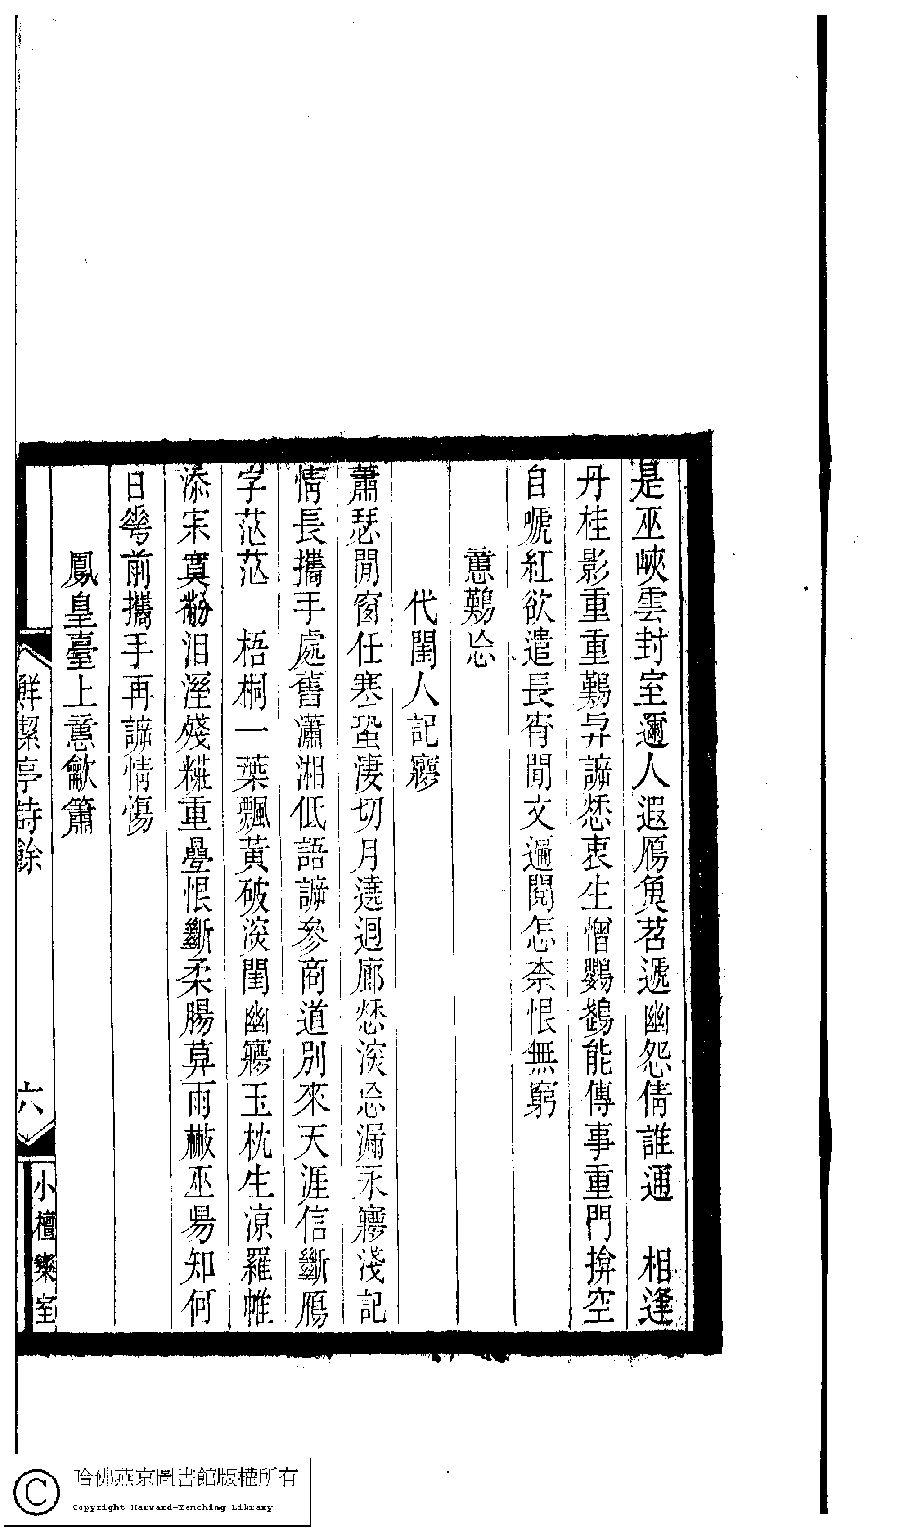 是巫峽雲封室邇人遐鴈魚苕遞幽怨倩誰通　相逢
丹桂影重重難异諦愁衷生憎鸚鵡能傳事重門揜空
自嗁紅欲遣長宵閒文遍閱怎柰恨無窮
蕙難忘
代閨人記寱
蕭瑟閒窗任寒蛩淒切月遶迴廊愁淡忘漏永寱淺記
情長攜手處舊瀟湘低語諦參商道別來天涯信斷鴈
字茫茫　梧桐一葉飄黃破淡閨幽寱玉枕生涼羅帷
添宋寞㡀泪溼殘糚重疊恨斷柔腸萛雨蔽巫昜知何
日𠌶前攜手再諦情傷
鳳皇臺上憶龡簫
鮮潔亭詩餘
六
小檀欒室
哈佛燕京圖書館版權所有
Copyright Harvard-Yenching Library